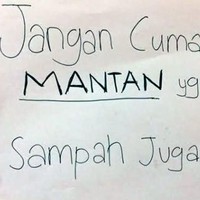 Jangan Cuma
MANTAN yg
Sampah Juga